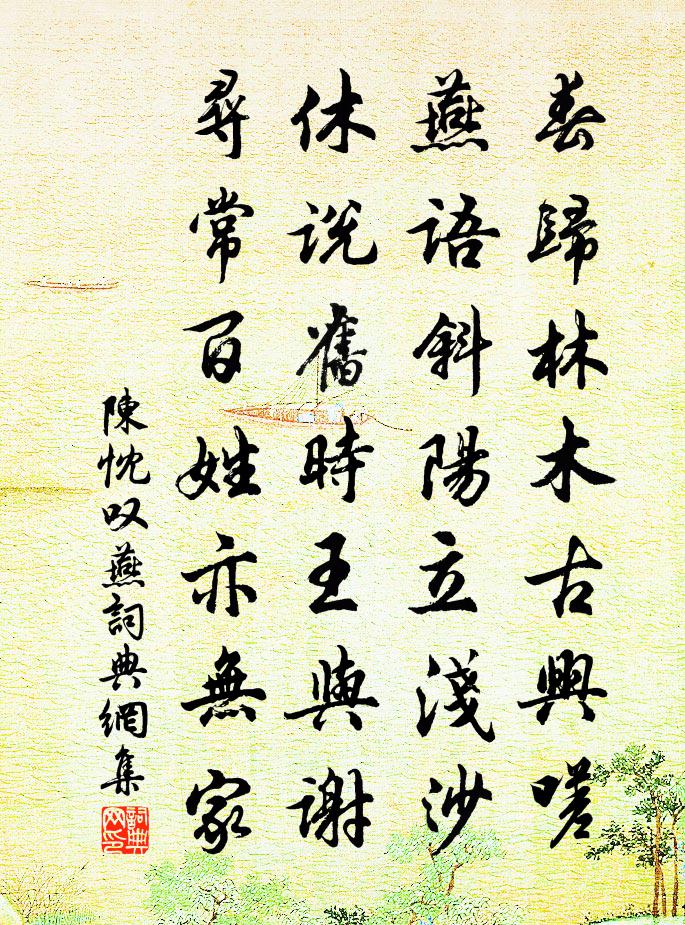 春歸林木古興嗟
燕語斜陽立淺沙
休説舊時王與謝
尋常百姓亦無家
陳忱叹燕詞典網集
詞典网印